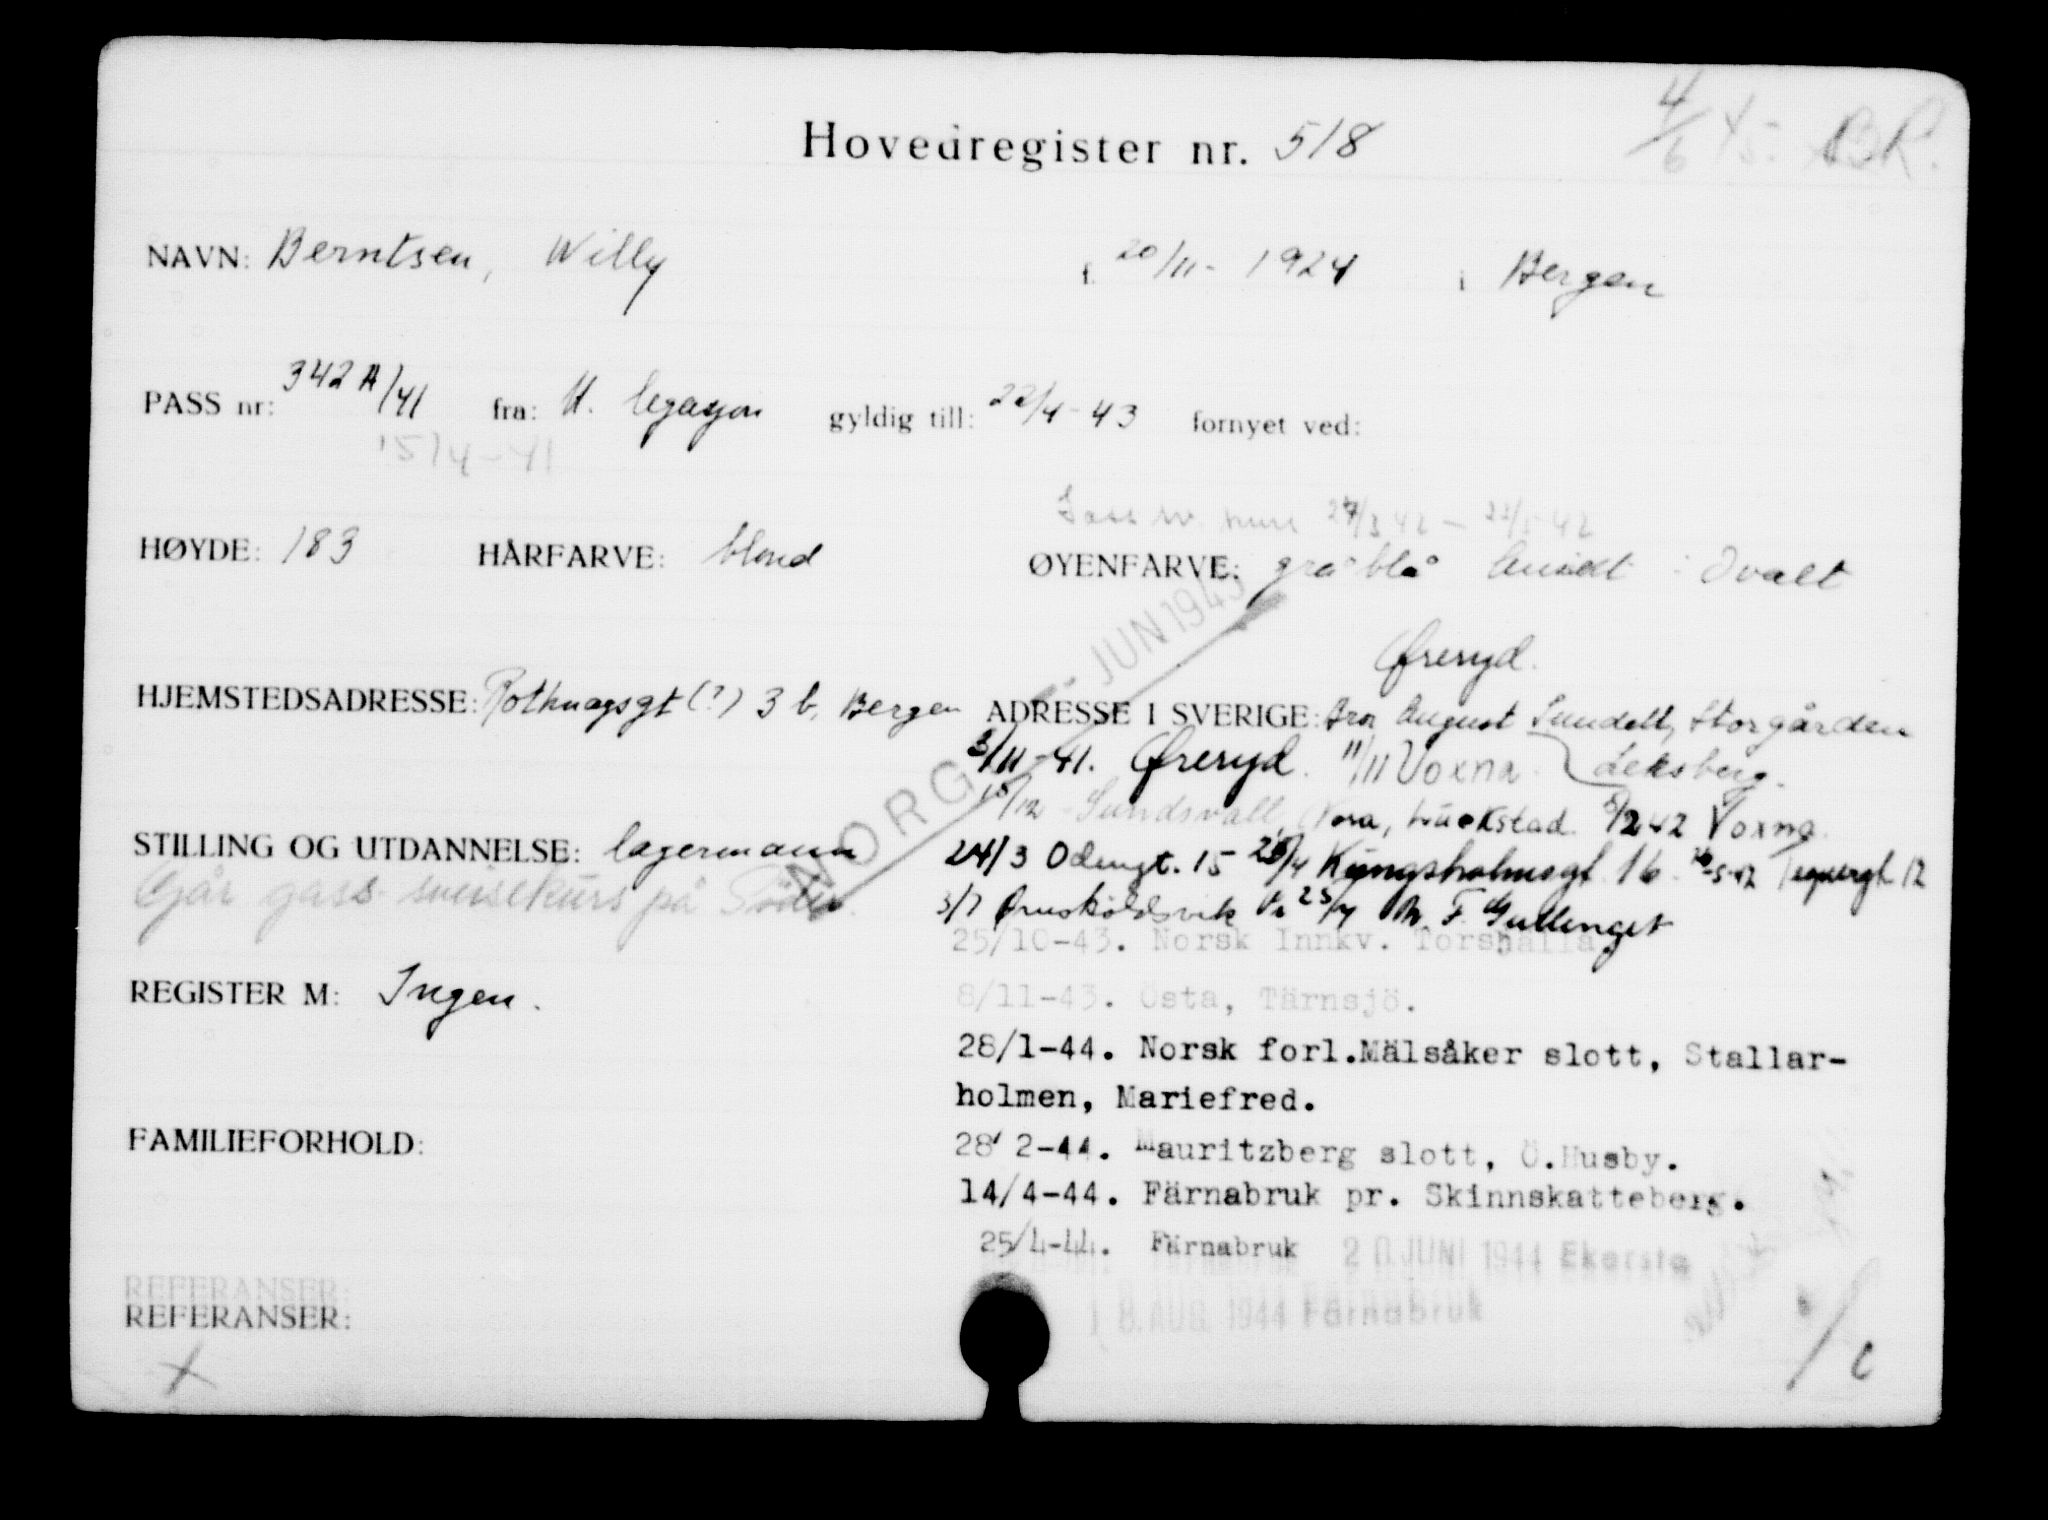 Hovedregister nr. 518
4/6 45. BR.
NAVN: Berntsen, Willy f. 20/11- 1924 i Bergen
PASS nr: 342 A/41 fra: H. legasjon gyldig till: 22/4-43 fornyet ved:
15/4-41
27/3 42 - 22/5 42
HØYDE: 183 HÅRFARVE: blond ØYENFARVE: grå blå Ansikt : Ovalt
JUN 1945
Øreryd.
HJEMSTEDSADRESSE: (?) 3 b, Bergen ADRESSE I SVERIGE: August Sundell, Storgården
3/11-41. Øreryd. 11/11 Voxna. Leksberg.
NORGE
15/12 Sundsvall, 42 Voxna.
STILLING OG UTDANNELSE: lagermann 24/3 Odengt. 15 Kungsholmsgt. 16 Tegnergt. 12
Går gass sveisekurs på
3/7 Ørnskoldsvik
25/10-43. Norsk Innkv. Torshälla
REGISTER M: Ingen.
8/11-43. Östa, Tärnsjö.
28/1-44. Norsk forl.Mälsåker slott, Stallar-
holmen, Mariefred.
FAMILIEFORHOLD:
28/2-44. Mauritzberg slott, Ö.Husby.
14/4-44. Färnabruk pr. Skinnskatteberg.
25/4-44. Färnabruk 20 JUNI 1944 Ekorsta
REFERANSER:
REFERANSER:
18. AUG. 1944 Färnabruk